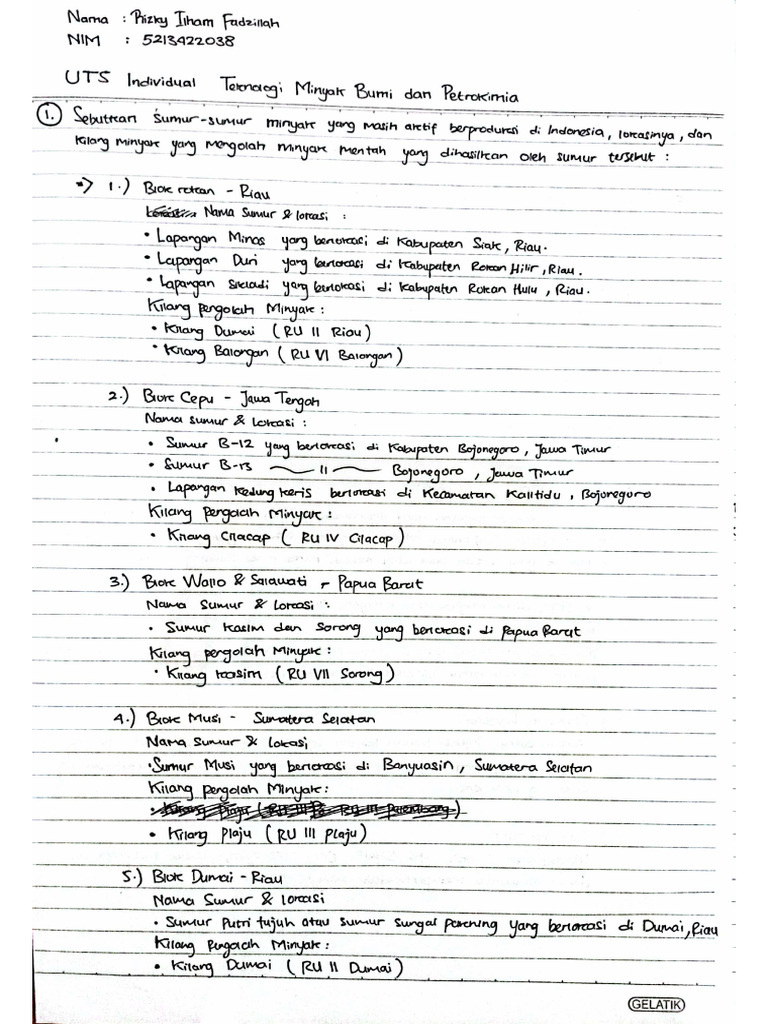 Nama : Rizky Ilham Fadzillah
NIM : 5213422038
UTS Individual Teknologi Minyak Bumi dan Petrokimia
1. Sebutkan sumur-sumur minyak yang masih aktif berproduksi di Indonesia, lokasinya, dan
kilang minyak yang mengolah minyak mentah yang dihasilkan oleh sumur tersebut :
=> 1.) Blok rokan - Riau
Nama Sumur & lokasi :
• Lapangan Minas yang berlokasi di Kabupaten Siak, Riau.
• Lapangan Duri yang berlokasi di Kabupaten Rokan Hilir, Riau.
• Lapangan Sikladi yang berlokasi di Kabupaten Rokan Hulu, Riau.
Kilang pengolah Minyak :
• Kilang Dumai (RU II Riau)
• Kilang Balongan (RU VI Balongan)
2.) Blok Cepu - Jawa Tengah
Nama sumur & Lokasi :
• Sumur B-12 yang berlokasi di Kabupaten Bojonegoro, Jawa Timur
• Sumur B-13 —— 11 —— Bojonegoro, Jawa Timur
• Lapangan Kedung keris berlokasi di Kecamatan Kalitidu, Bojonegoro
Kilang pengolah Minyak :
• Kilang Cilacap (RU IV Cilacap)
3.) Blok Wailo & Salawati - Papua Barat
Nama Sumur & Lokasi :
• Sumur Kasim dan Sorong yang berlokasi di Papua Barat
Kilang pengolah Minyak :
• Kilang kasim (RU VII Sorong)
4.) Blok Musi - Sumatera Selatan
Nama Sumur & Lokasi
• Sumur Musi yang berlokasi di Banyuasin, Sumatera Selatan
Kilang pengolah Minyak :
• Kilang Plaju (RU III Plaju)
5.) Blok Dumai - Riau
Nama Sumur & lokasi
• Sumur Putri tujuh atau sumur sungai pakning yang berlokasi di Dumai, Riau
Kilang Pengolah Minyak :
• Kilang Dumai (RU II Dumai)
GELATIK